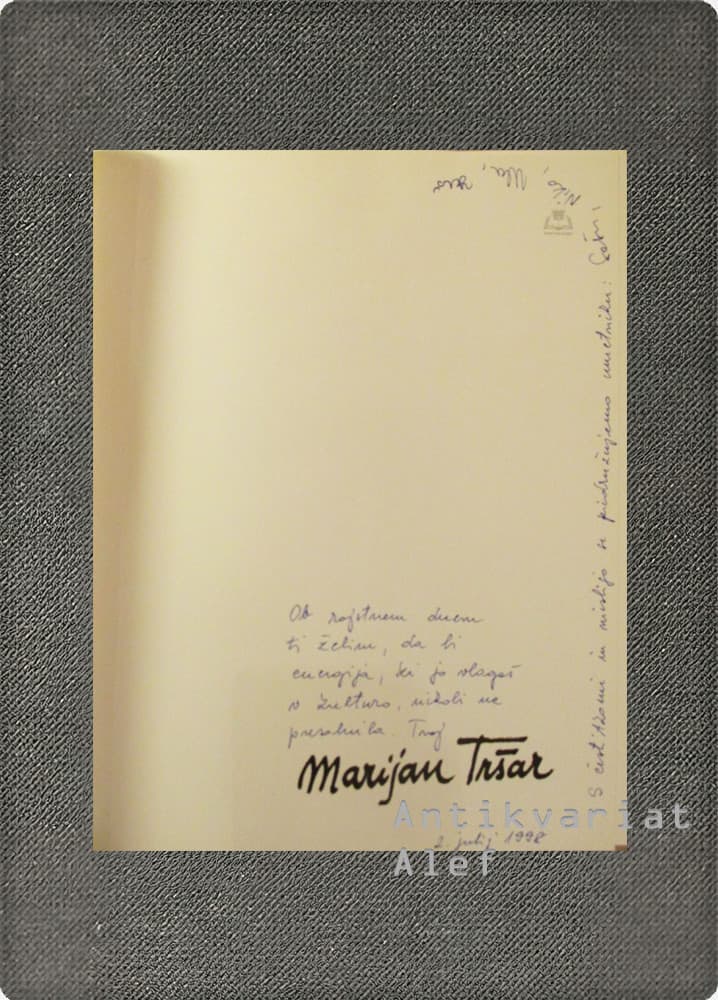 Ob rojstnem dnem
ti želim, da bi
energija, ki jo vlagaš
v kulturo, nikoli ne
presahnila. Tvoj
Marijan Tršar
2. julij 1998
S čestitkami in mislijo se pridružujemo umetniku:
Niko,
Antikvariat
Alef